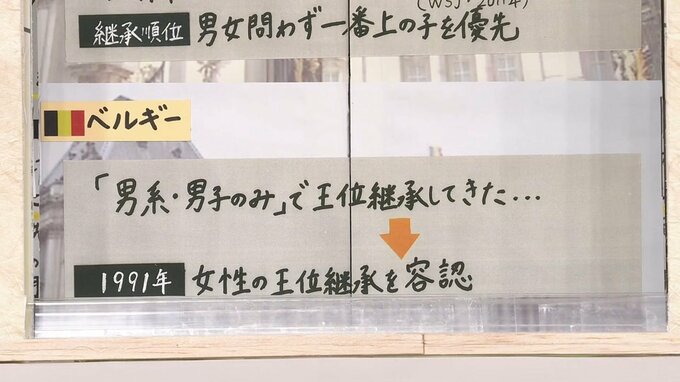 (WSJ・2014)
継承順位 男女問わず一番上の子を優先
ベルギー
「男系・男子のみ」で王位継承してきた・・・
1991年 女性の王位継承を容認